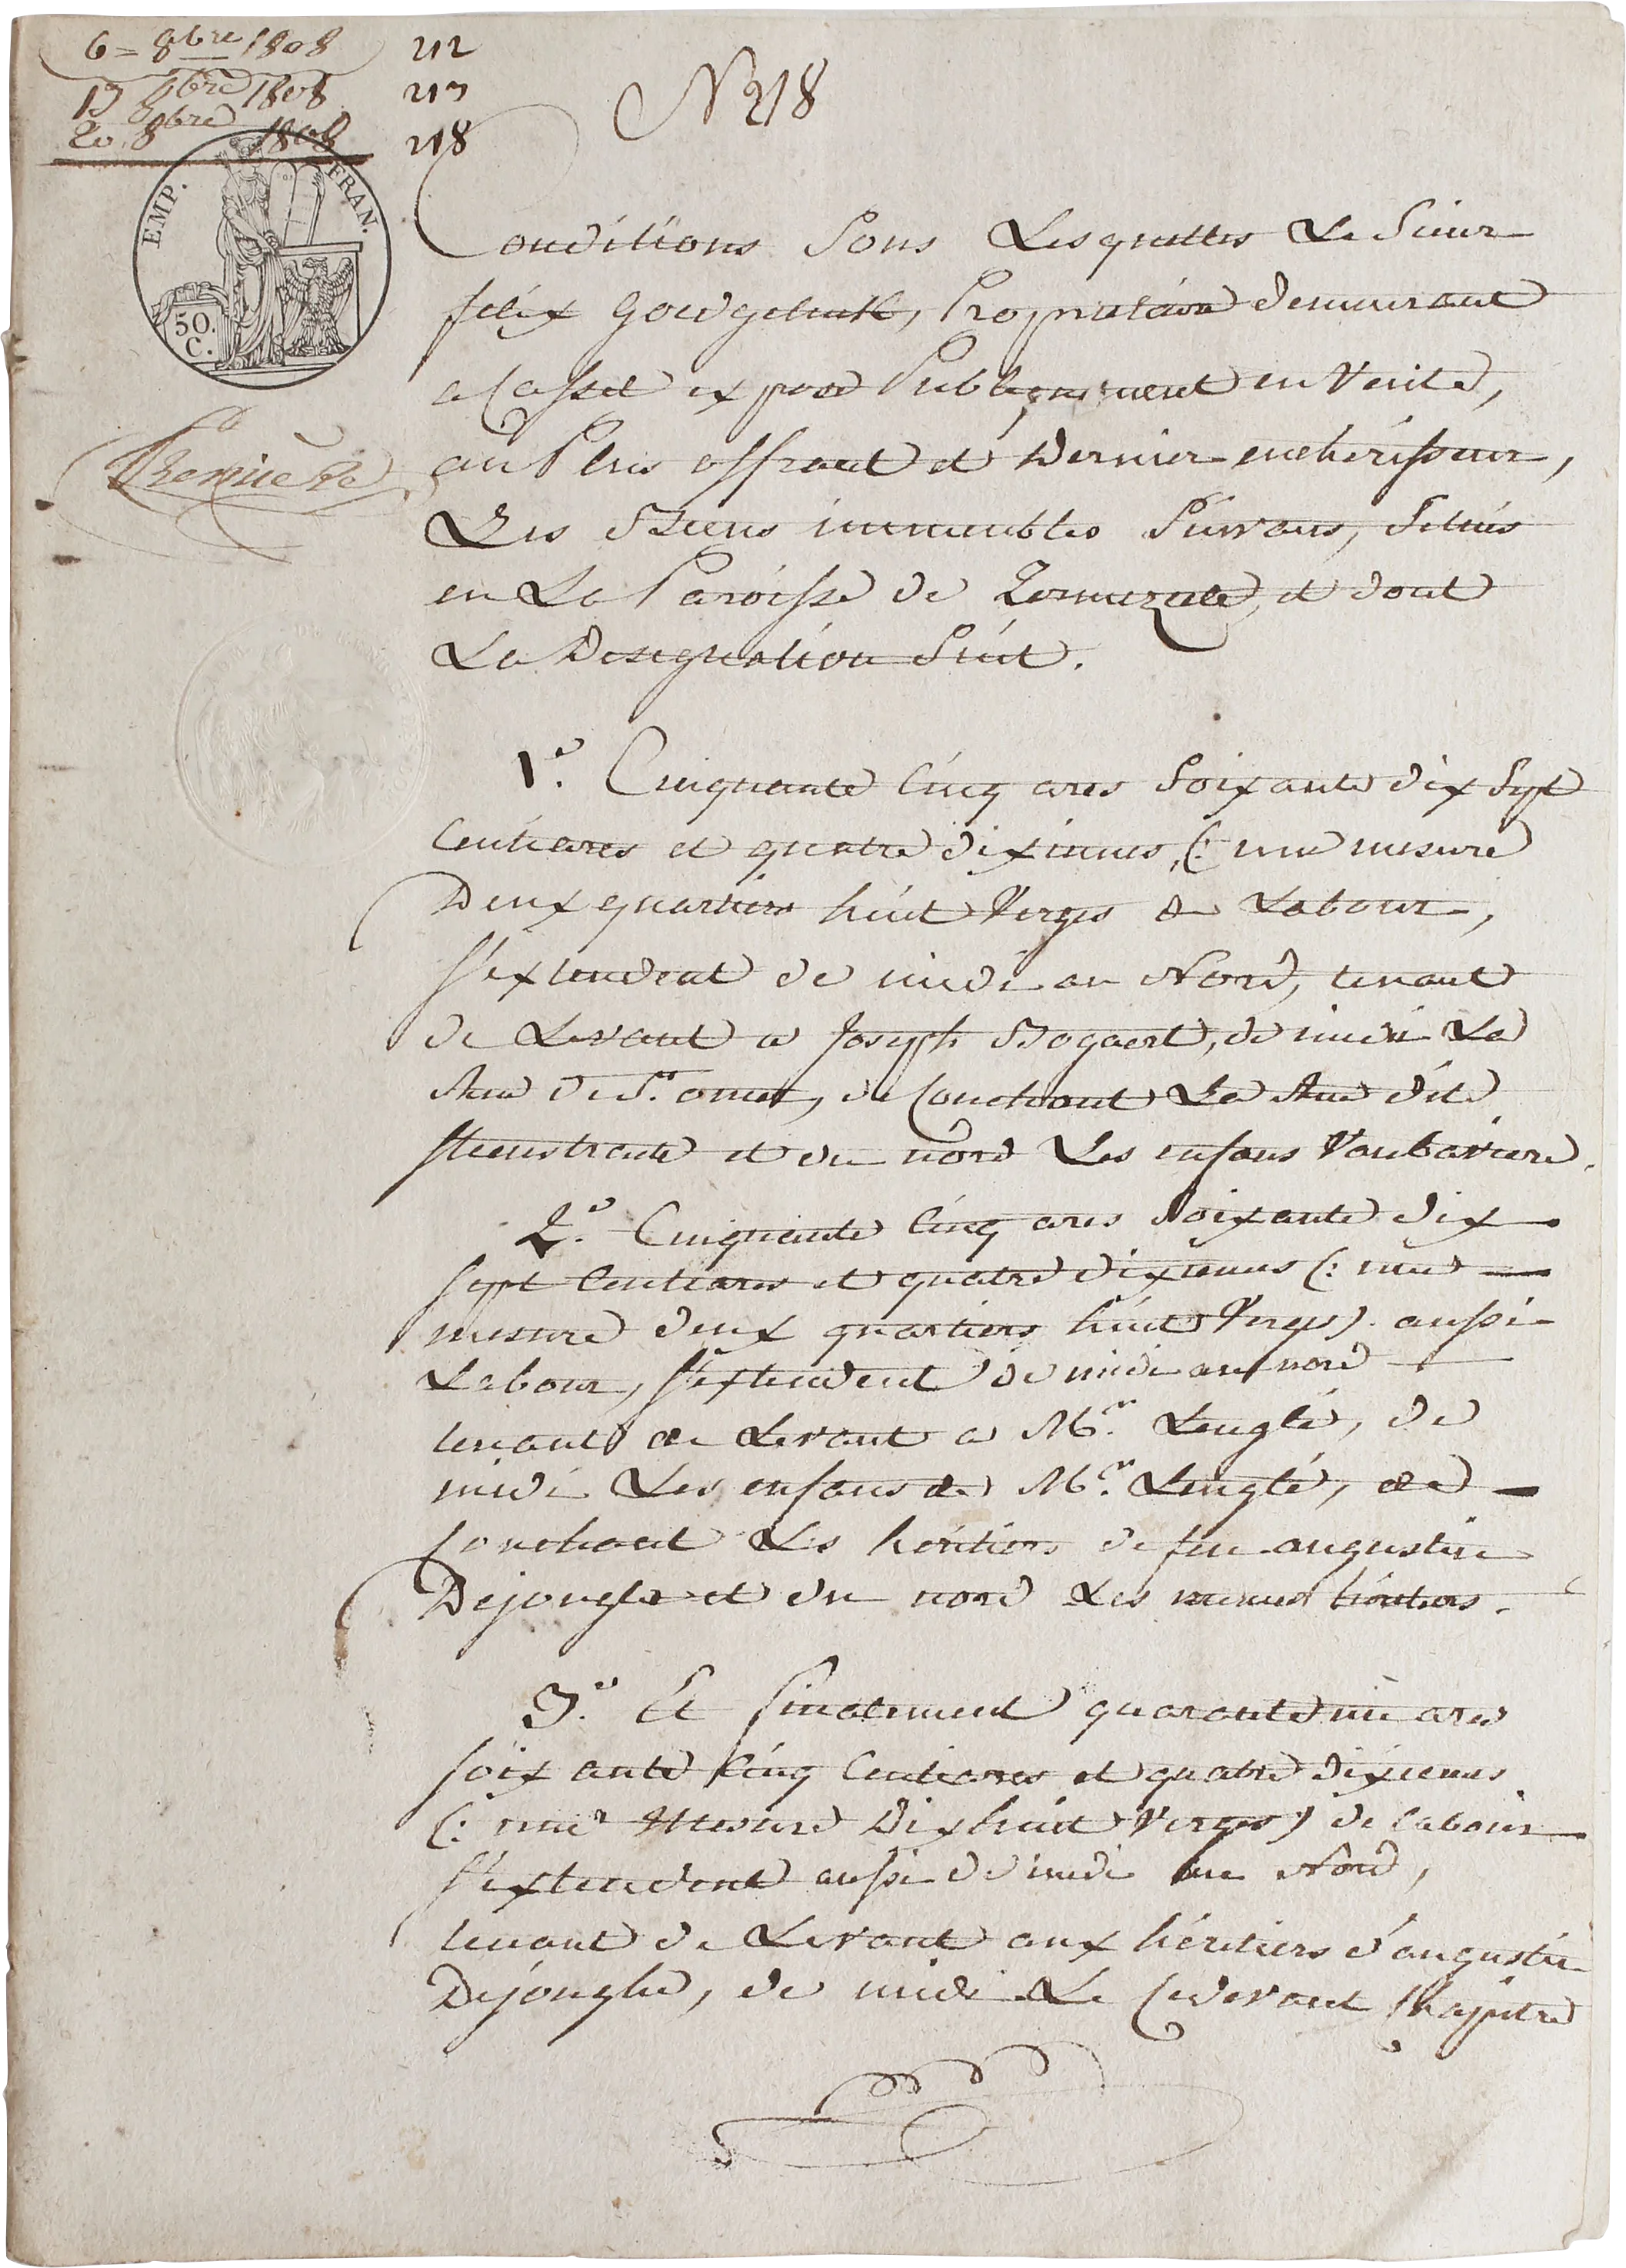 6 = 8bre 1808 212
13 8bre 1808 213
20 8bre 1808 218
N 218
EMP. FRAN.
50.
C.
Conditions Sous Lesquelles Le Sieur
felix Goudgeluck, Proprietaire demeurant
a Cassel expose Publiquement en Vente,
au Plus offrant et Dernier encherisseur,
Les Biens immeubles Suivans, Situés
en La Paroisse de Zermezeele, et dont
La Designation Suit.
Premiere
1°. Cinquante Cinq ares Soixante dix Sept
Centiares et quatre dixiemes, (: une mesure
Deux quartiers huit Verges de Labour,
S'extendent de midi au Nord, tenant
de Levant a Joseph Bogaert, de midi La
Rue de St. omer, de Couchant La Rue dite
Steenstraete et du nord Les enfans Vanbaviere.
2°. Cinquante Cinq ares Soixante dix
Sept Centiares et quatre dixiemes (: une
mesure deux quartiers huit Verges) aussi
Labour, S'extendent de midi au nord
tenant de Levant a Mr. Lenglé, de
midi Les enfans de Mr. Lenglé, de
Couchant Les heritiers de feu augustin
Dejonghe et du nord Les memes heritiers.
3°. Et finalement quarante un ares
Soixante Cinq Centiares et quatre dixiemes
(: une Mesure Dixhuit Verges) de labour
S'extendent aussi de midi au Nord,
tenant de Levant aux héritiers d'augustin
Dejonghe, de midi Le Cidevant Chapitre